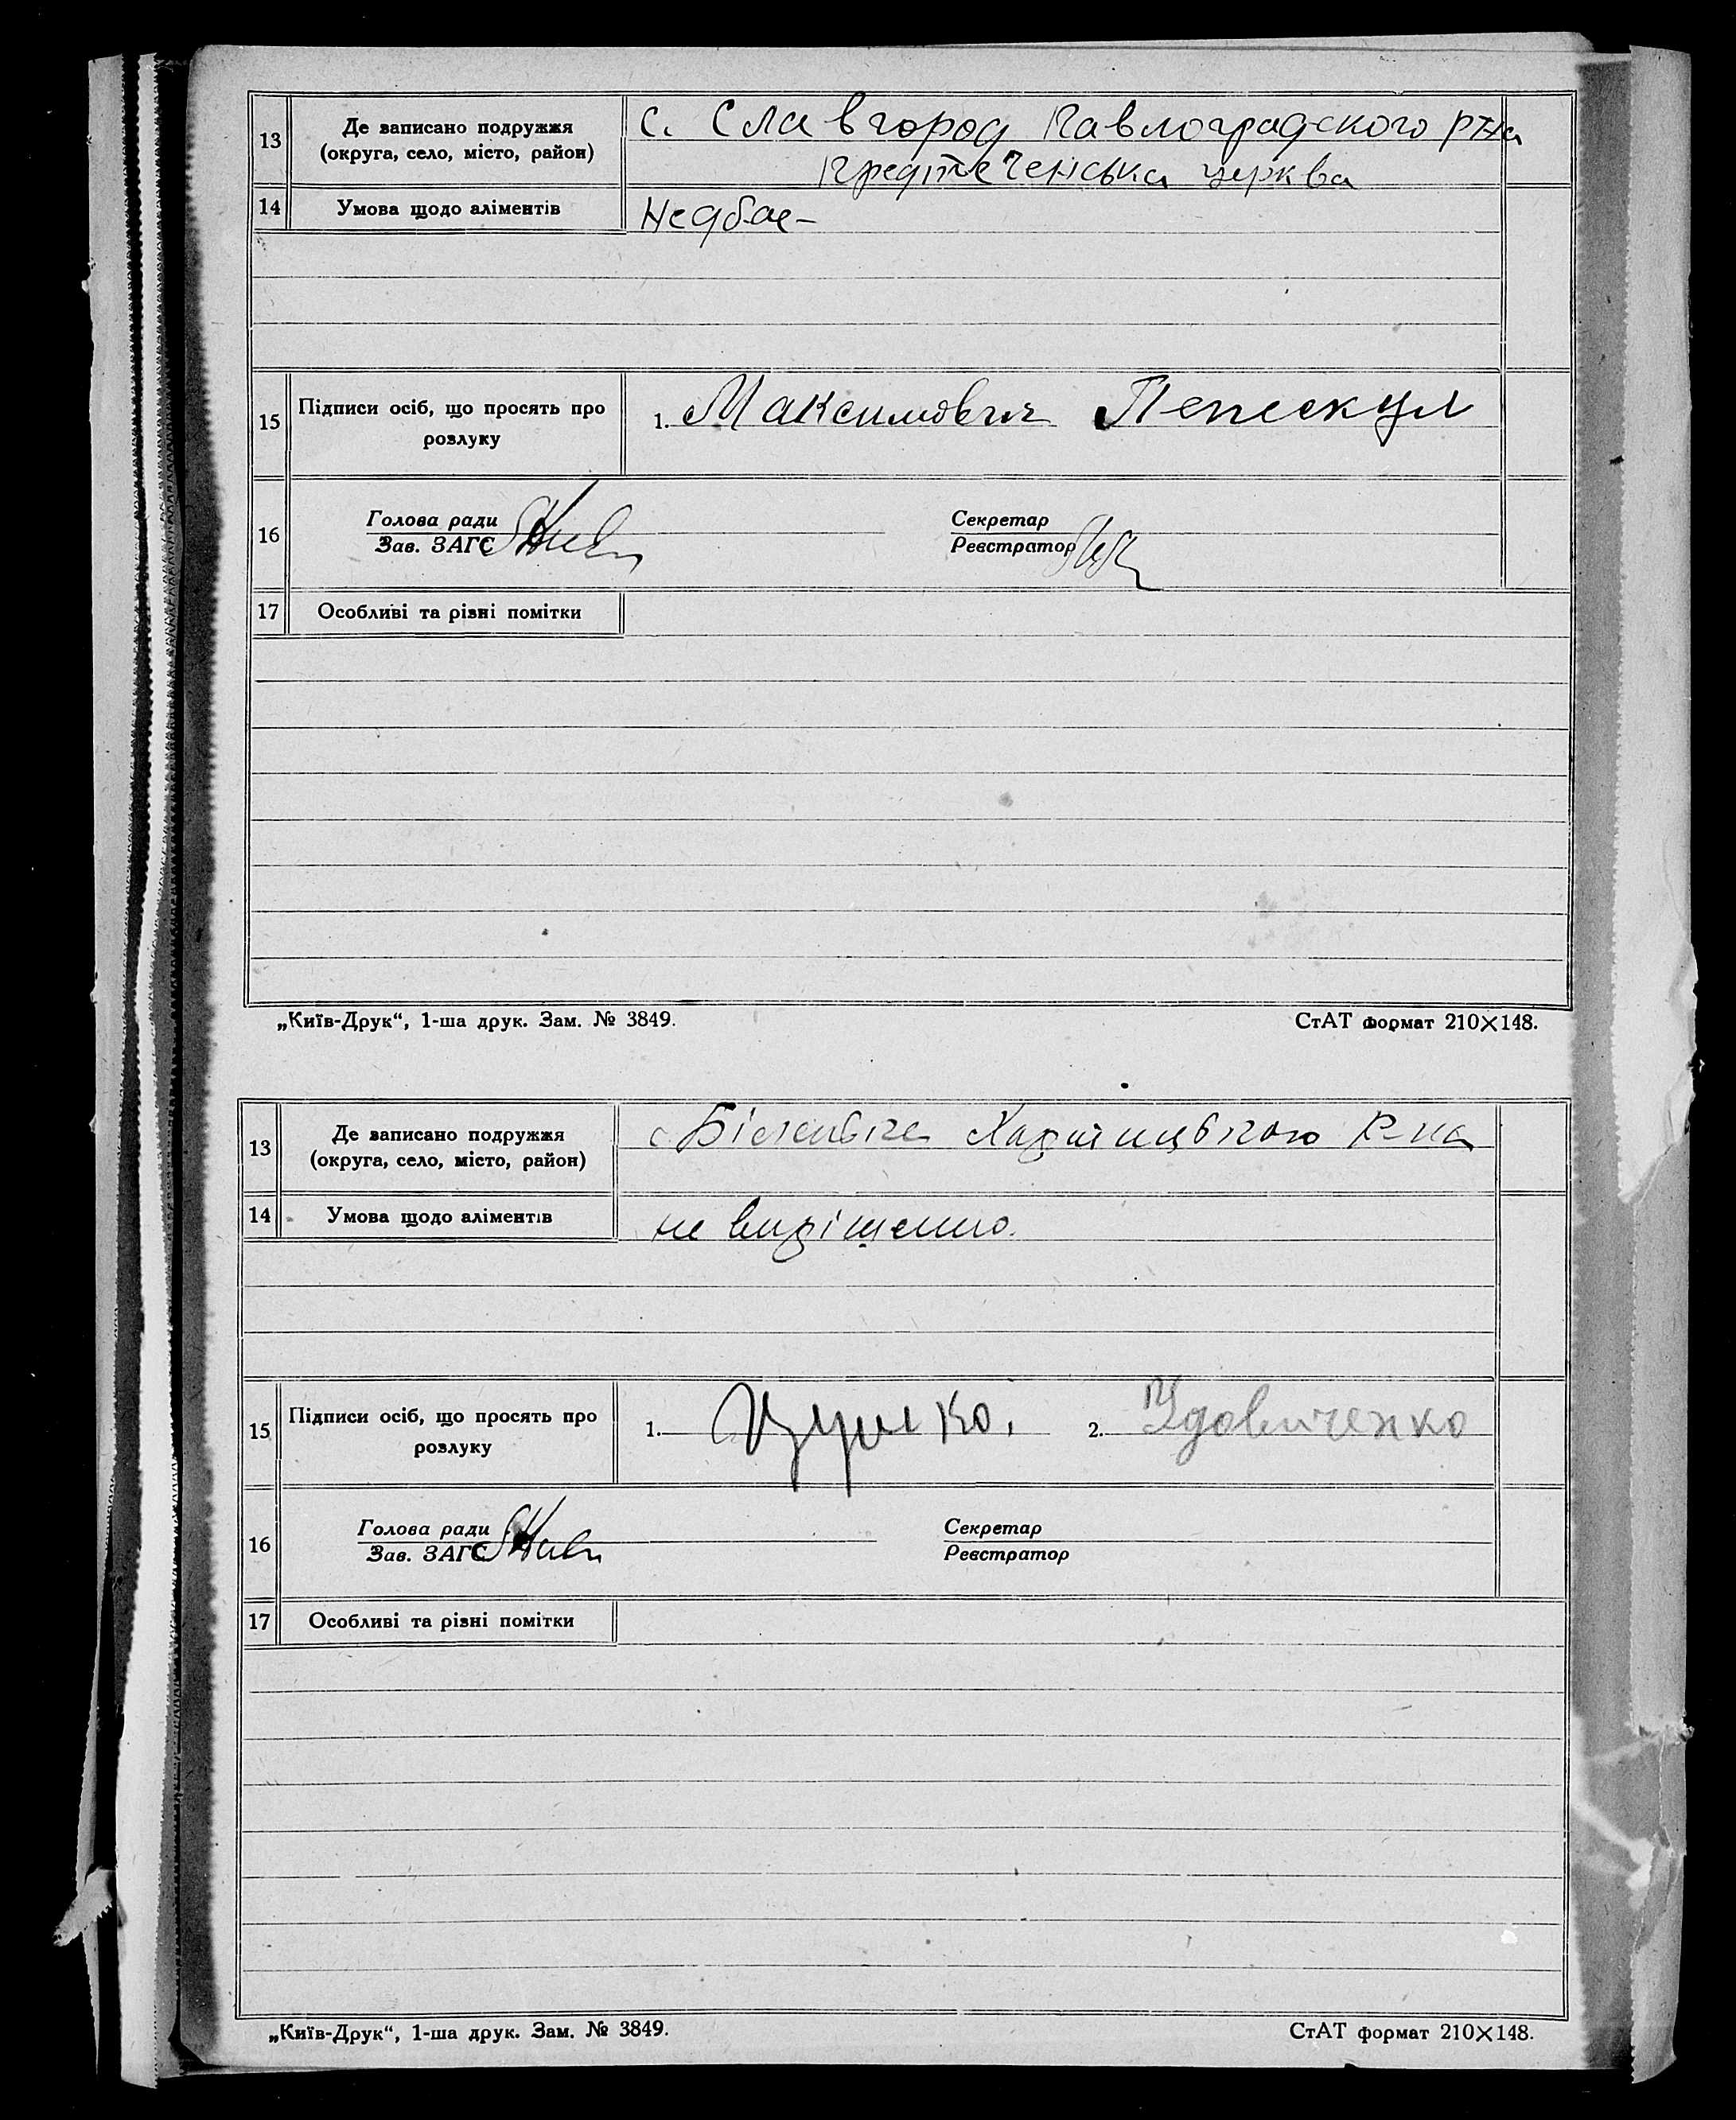 13
Де записано подружжя
(округа, село, місто, район)
с. Славгород Павлоградского р-на
Предтеченська церква
14
Умова щодо аліментів
15
Підписи осіб, що просять про
розлуку
1. Максимович Пепескул
16
Голова ради
Зав. ЗАГС
Секретар
Реєстратор
17
Особливі та різні помітки
„Київ-Друк“, 1-ша друк. Зам. № 3849.
СтАТ формат 210×148.
13
Де записано подружжя
(округа, село, місто, район)
с. Р-на
14
Умова щодо аліментів
не вирішенно.
15
Підписи осіб, що просять про
розлуку
1.
2. Удовиченко
16
Голова ради
Зав. ЗАГС
Секретар
Реєстратор
17
Особливі та різні помітки
„Київ-Друк“, 1-ша друк. Зам. № 3849.
СтАТ формат 210×148.